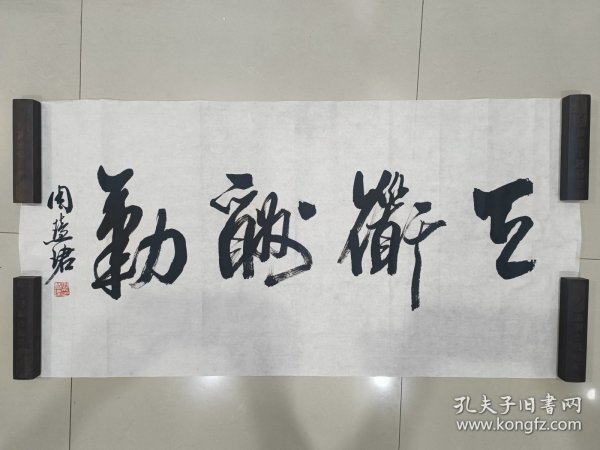 天衜酬勤
周慧珺
孔夫子旧書网
www.kongfz.com